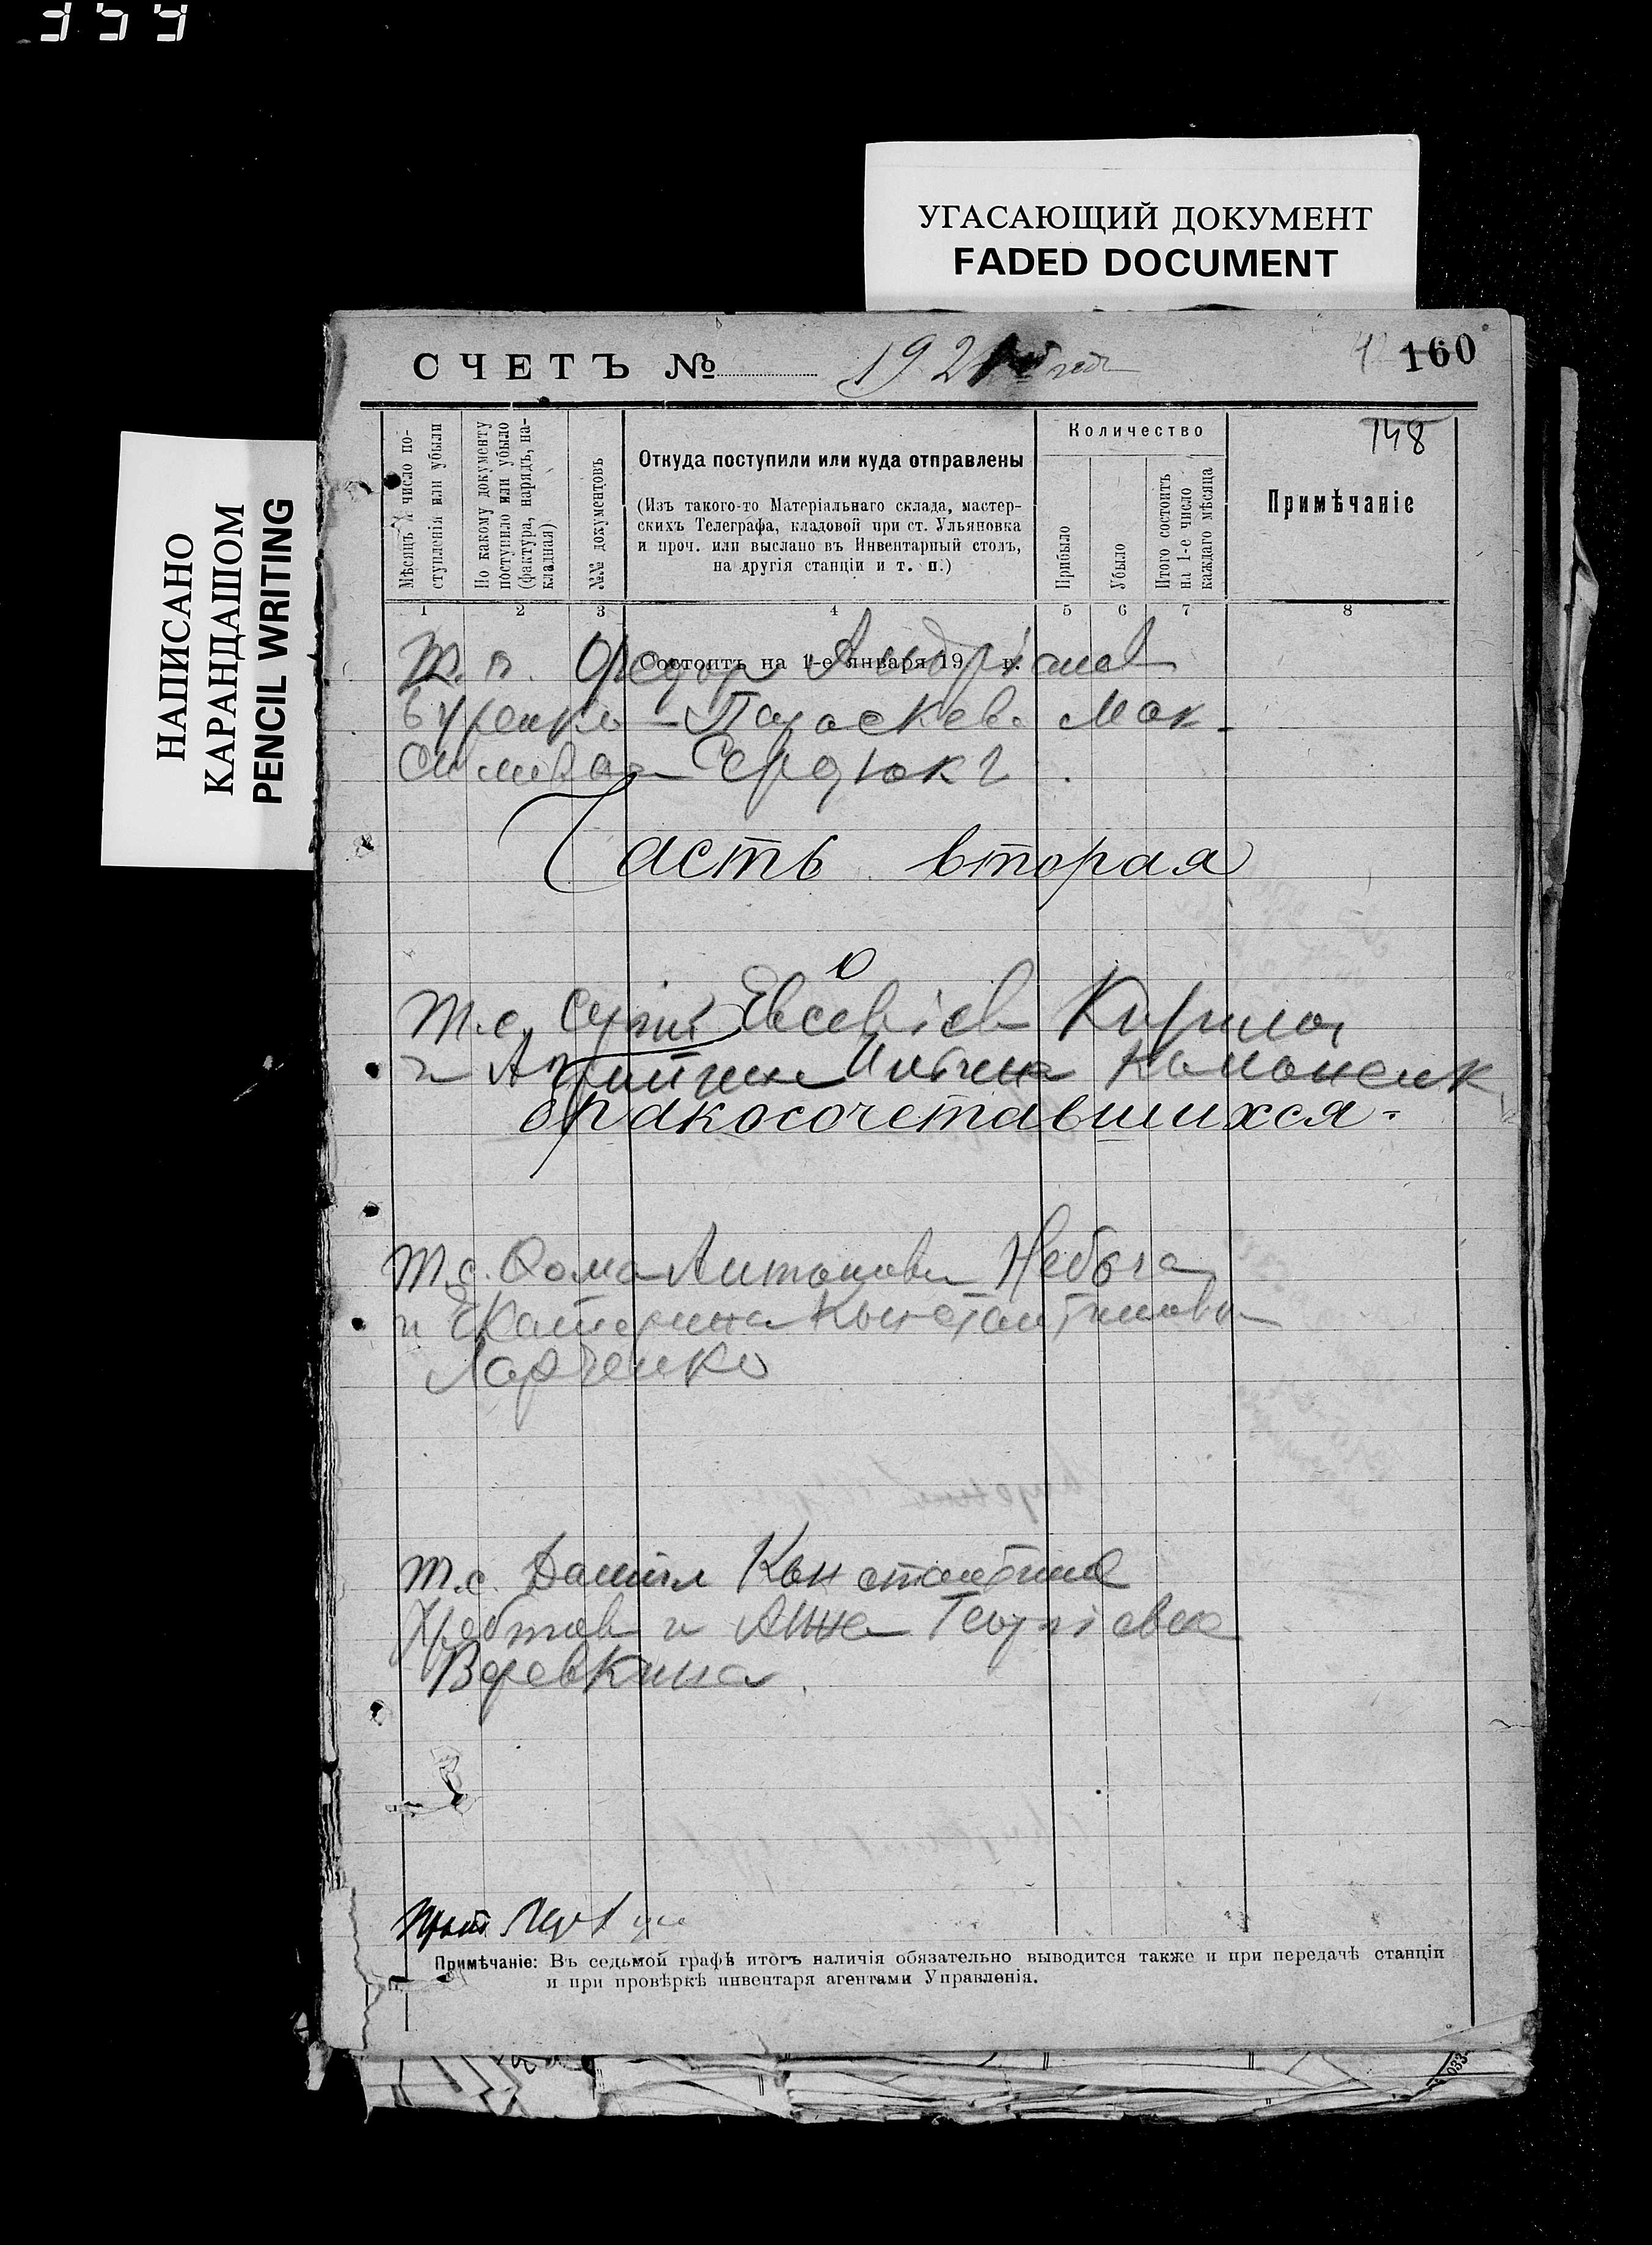 359
УГАСАЮЩИЙ ДОКУМЕНТ
FADED DOCUMENT
НАПИСАНО
КАРАНДАШОМ
PENCIL WRITING
160
СЧЕТЪ № 192
148
Мѣсяцъ и число поступленія или убыли
По какому документу поступило или убыло (фактура, нарядъ, накладная)
№№ документовъ
Откуда поступили или куда отправлены
(Изъ такого-то Матеріальнаго склада, мастер-
скихъ Телеграфа, кладовой при ст. Ульяновка
и проч. или выслано въ Инвентарный столъ,
на другія станціи и т. п.)
Количество
Прибыло
Убыло
Итого состоитъ на 1-е число каждаго мѣсяца
Примѣчаніе
1 2 3 4 5 6 7 8
Состоитъ на 1-е января 19 г.
Т. п. Федор Андріанов
Буренко Параскева Мак-
симова Сердюк
Часть вторая
о
Т. с. Евсевіев
и
бракосочетавшихся
Т. с. Фома Антонов Небога
и Екатерина Константинова
Ларченко
Т. с. Даниил Константинов
Хребтов и Анна Георгіевна
Веревкина
Примѣчаніе: Въ седьмой графѣ итогъ наличія обязательно выводится также и при передачѣ станціи
и при провѣркѣ инвентаря агентами Управленія.